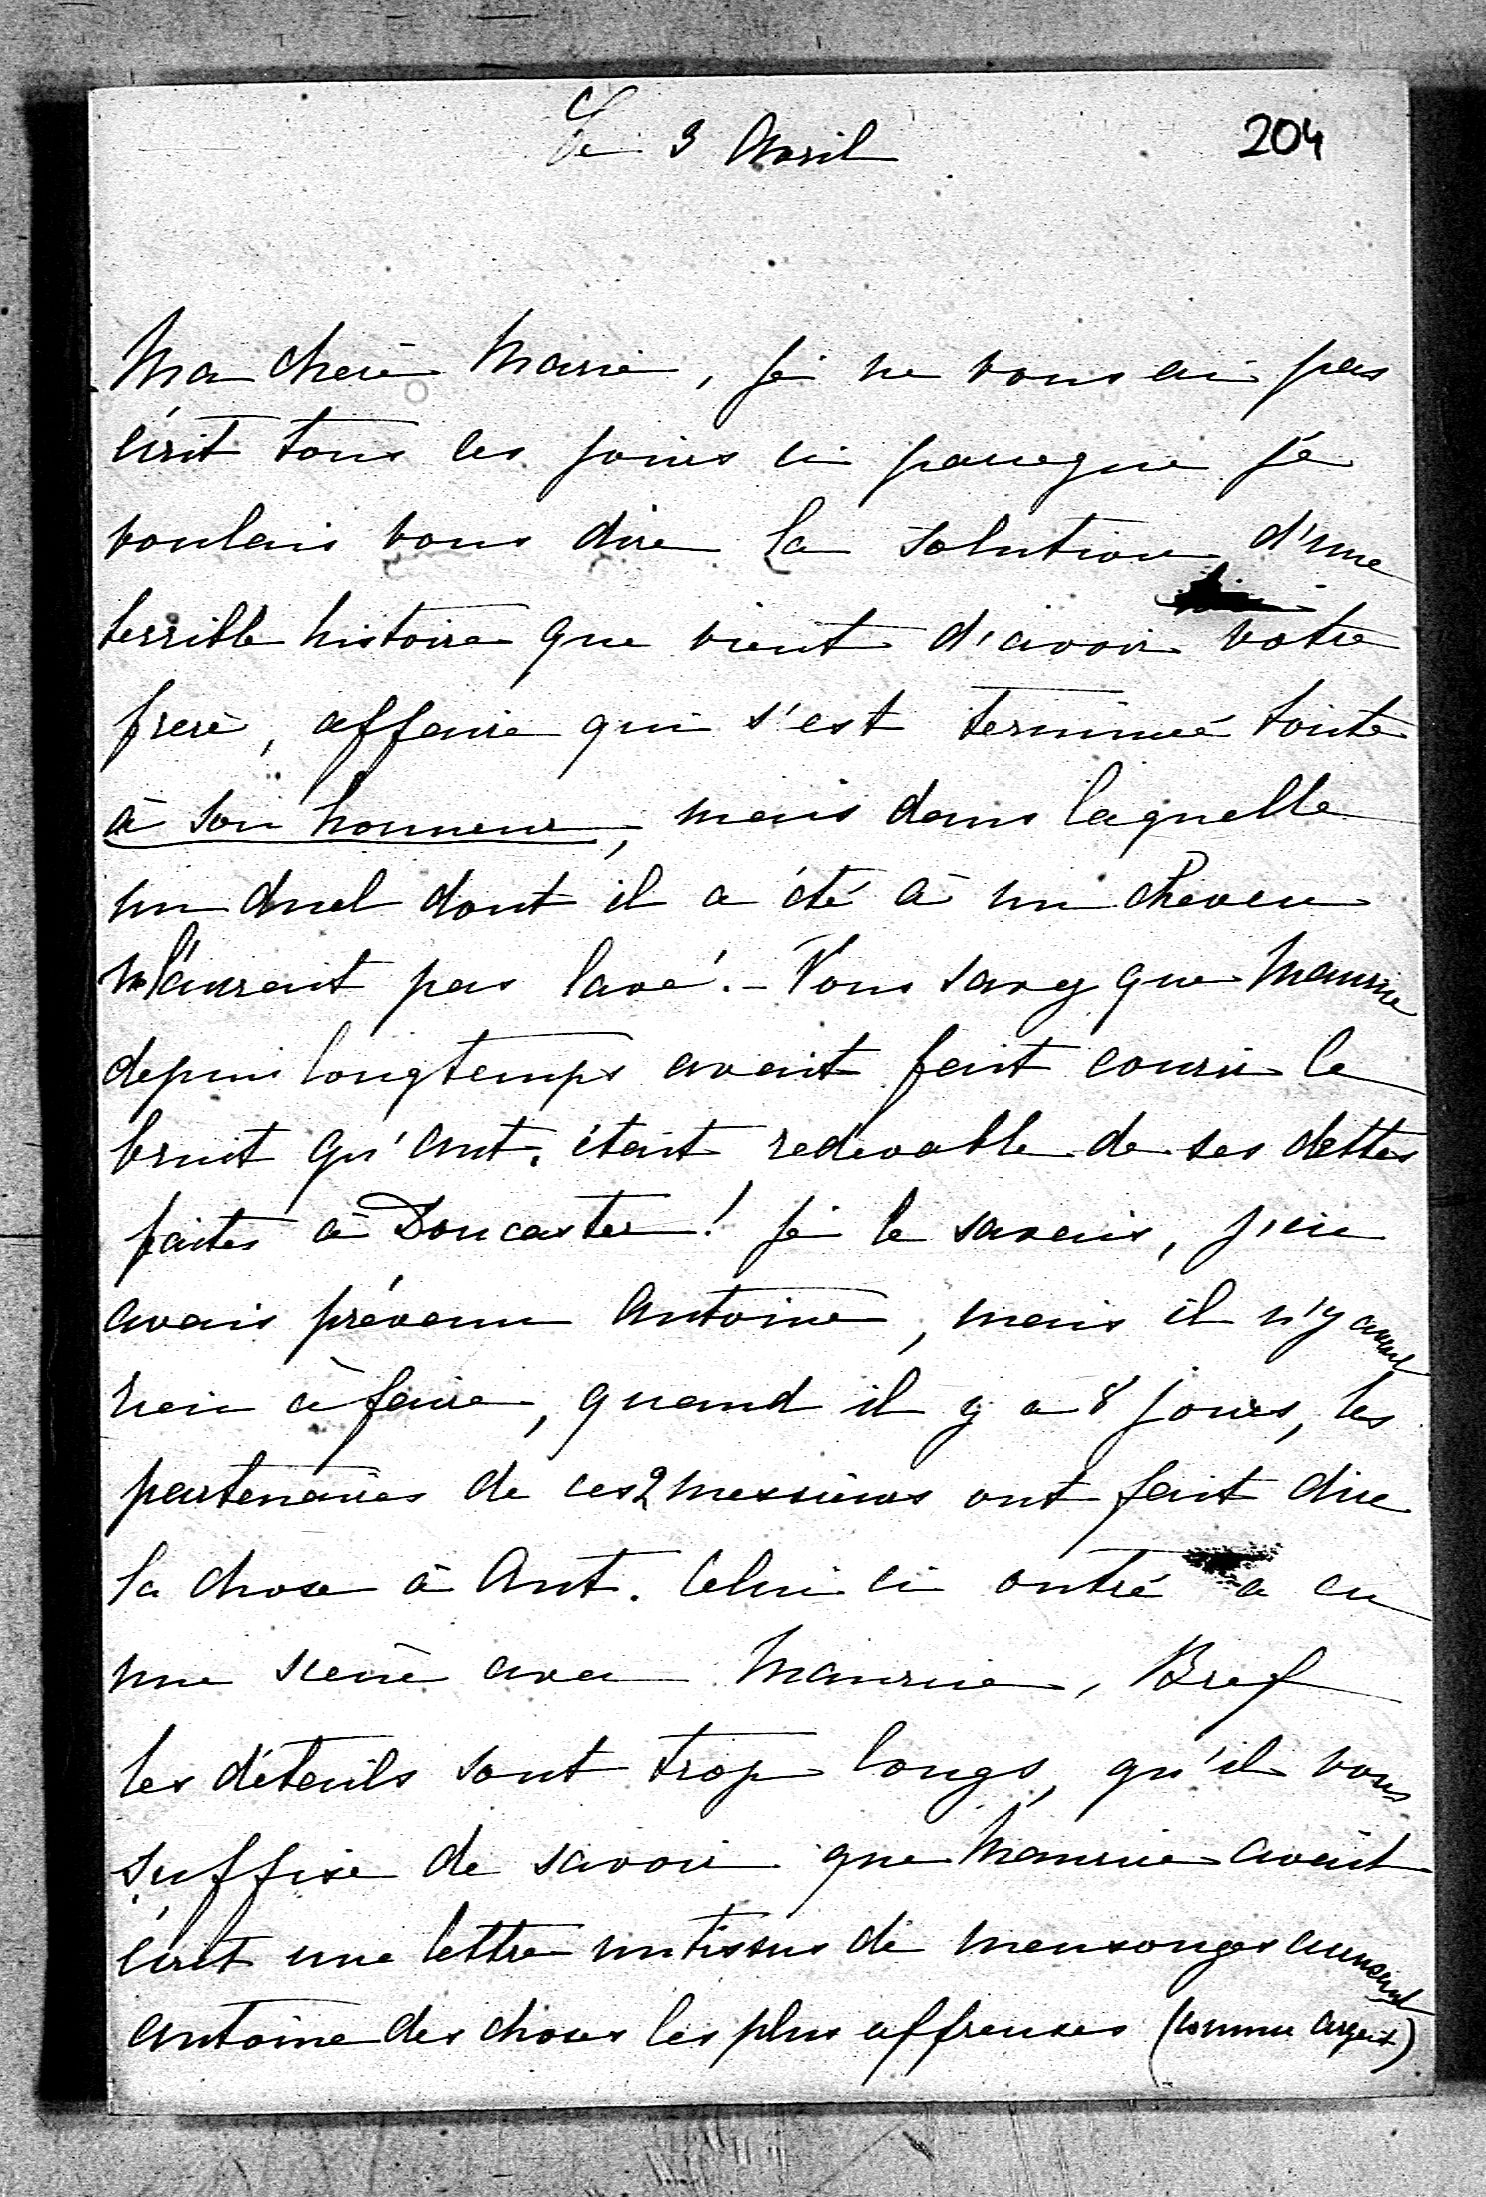 Le 3 Avril
204
Ma chère Marie, je ne vous ai pas
écrit tous les jours ci parceque je
voulais vous dire la solution d'une
terrible histoire que vient d'avoir votre
frère, affaire qui s'est terminée toute
à son honneur, mais dans laquelle
un duel dont il a été à un cheveu
n'l'aurait pas lavé. - Vous savez que Maurice
depuis longtemps avait fait courir le
bruit qu'Ant. était redevable de ses dettes
faites à Doncaster! Je le savais, j'en
avais prévenu Antoine, mais il n'y avait
rien à faire, quand il y a 8 jours, les
partenaires de ces 2 messieurs ont fait dire
la chose à Ant. Celui ci outré a eu
une scène avec Maurice, Bref
les détails sont trop longs, qu'il vous
suffise de savoir que Maurice avait
écrit une lettre un tissus de mensonges accusant
Antoine des choses les plus affreuses (comme argent)